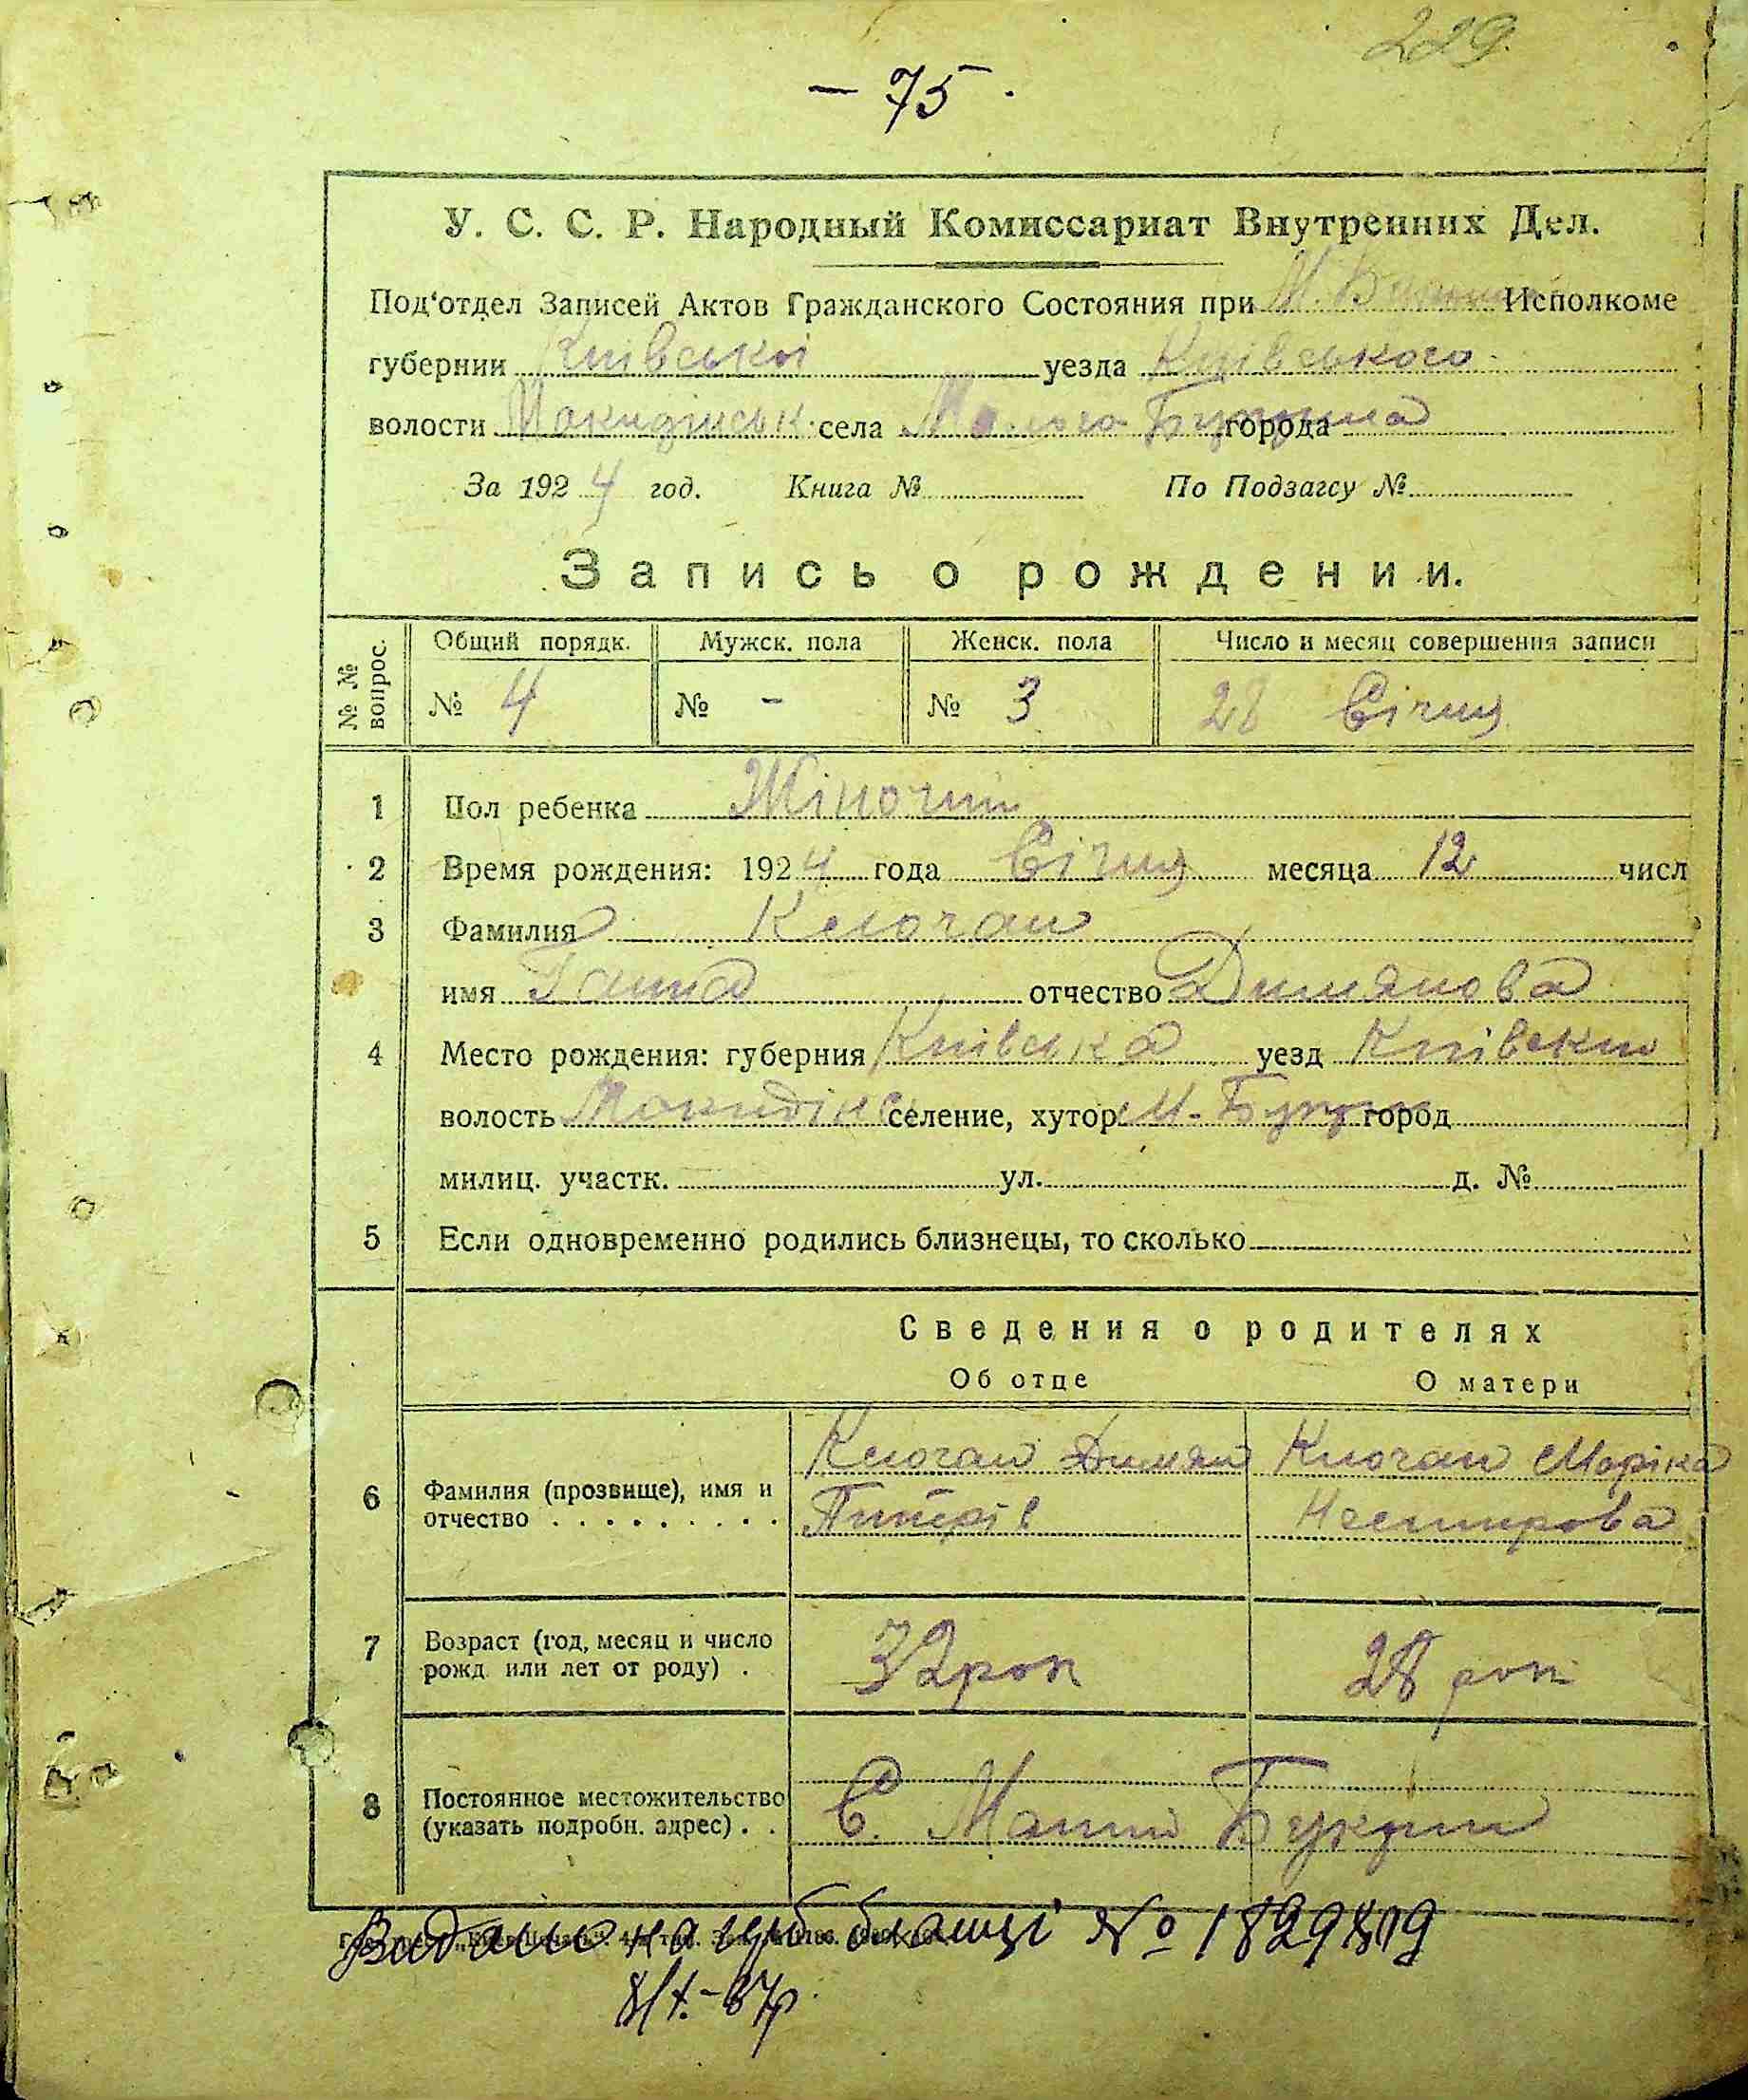 229.
– 75 .
У. С. С. Р. Народный Комиссариат Внутренних Дел.
Под'отдел Записей Актов Гражданского Состояния при М. Исполкоме
губернии Київської уезда Київського
волости села города
За 1924 год. Книга № По Подзагсу №
Запись о рождении.
№ № вопрос. Общий порядк. Мужск. пола Женск. пола Число и месяц совершения записи
№ 4 № - № 3 28 Січня
1 Пол ребенка Жіночий
2 Время рождения: 1924 года Січня месяца 12 числ
3 Фамилия Клочан
имя Ганна отчество Димянова
4 Место рождения: губерния Київська уезд Київский
волость селение, хутор М. город
милиц. участк. ул. д. №
5 Если одновременно родились близнецы, то сколько
Сведения о родителях
Об отце О матери
6 Фамилия (прозвище), имя и Клочан Димян Клочан Маріка
отчество . . . . . . . . . Питрів Нестирова
7 Возраст (год, месяц и число
рожд или лет от роду) . 32 рок 28 рок
8 Постоянное местожительство
(указать подробн. адрес) . . С. Малий Букрин
Видано на герббланці № 1829809